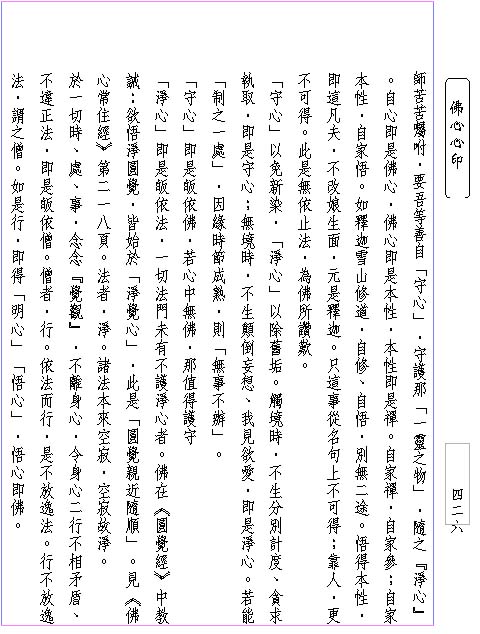 佛心心印
四二六
師苦苦囑咐，要吾等善自「守心」，守護那「一靈之物」，隨之『淨心』
。自心即是佛心，佛心即是本性，本性即是禪。自家禪，自家參；自家
本性，自家悟。如釋迦雪山修道，自修、自悟，別無二途。悟得本性，
即這凡夫，不改娘生面，元是釋迦。只這事從名句上不可得；靠人，更
不可得。此是無依止法，為佛所讚歎。
「守心」以免新染，「淨心」以除舊垢。觸境時，不生分別計度、貪求
執取，即是守心；無境時，不生顛倒妄想、我見欲愛，即是淨心。若能
「制之一處」，因緣時節成熟，則「無事不辦」。
「守心」即是皈依佛，若心中無佛，那值得護守
「淨心」即是皈依法，一切法門未有不護淨心者。佛在《圓覺經》中教
誡：欲悟淨圓覺，皆始於「淨覺心」，此是「圓覺親近隨順」。見《佛
心常住經》第二一八頁。法者，淨。諸法本來空寂，空寂故淨。
於一切時、處、事，念念『覺觀』，不離身心，令身心二行不相矛盾、
不違正法，即是皈依僧。僧者，行。依法而行，是不放逸法。行不放逸
法，謂之僧。如是行，即得「明心」「悟心」，悟心即佛。